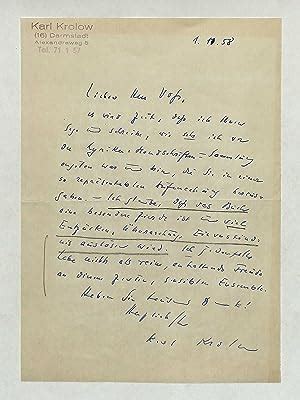 Karl Krolow
(16) Darmstadt
Alexandraweg 5
Tel. 71 1 57
1. 10. 58
Lieber Herr Voss,
es wird Zeit, dass ich Ihnen
sage und schreibe, wie sehr ich von
der Lyriker-Handschriften-Sammlung
angetan war und bin, die Sie in einer
so repräsentablen Aufmachung heraus-
gaben. – Ich glaube, dass das Buch
eine besondere Freude ist und viele
Entzücken, Überraschung, Einverständ-
nis auslösen wird. Ich jedenfalls
habe nichts als reine, anhaltende Freude
an diesem, sensiblen Ensemble.
Haben Sie Dank!
Herzlichst
Karl Krolow